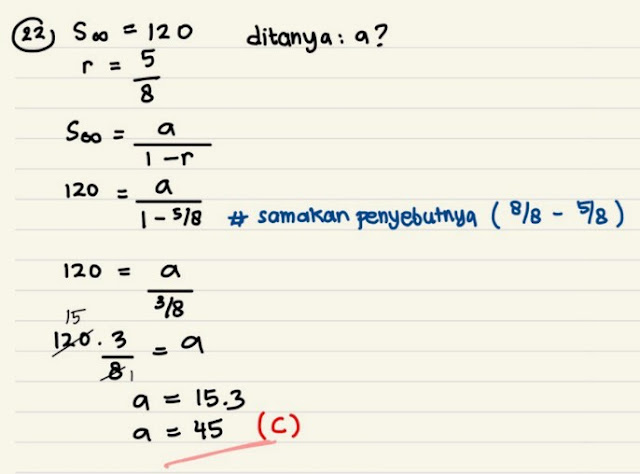 22) S∞ = 120 ditanya : a?
r = 5/8
S∞ = a/(1 - r)
120 = a/(1 - 5/8) # samakan penyebutnya ( 8/8 - 5/8 )
120 = a/(3/8)
15
120 . 3/8 = a
1
a = 15.3
a = 45 (C)